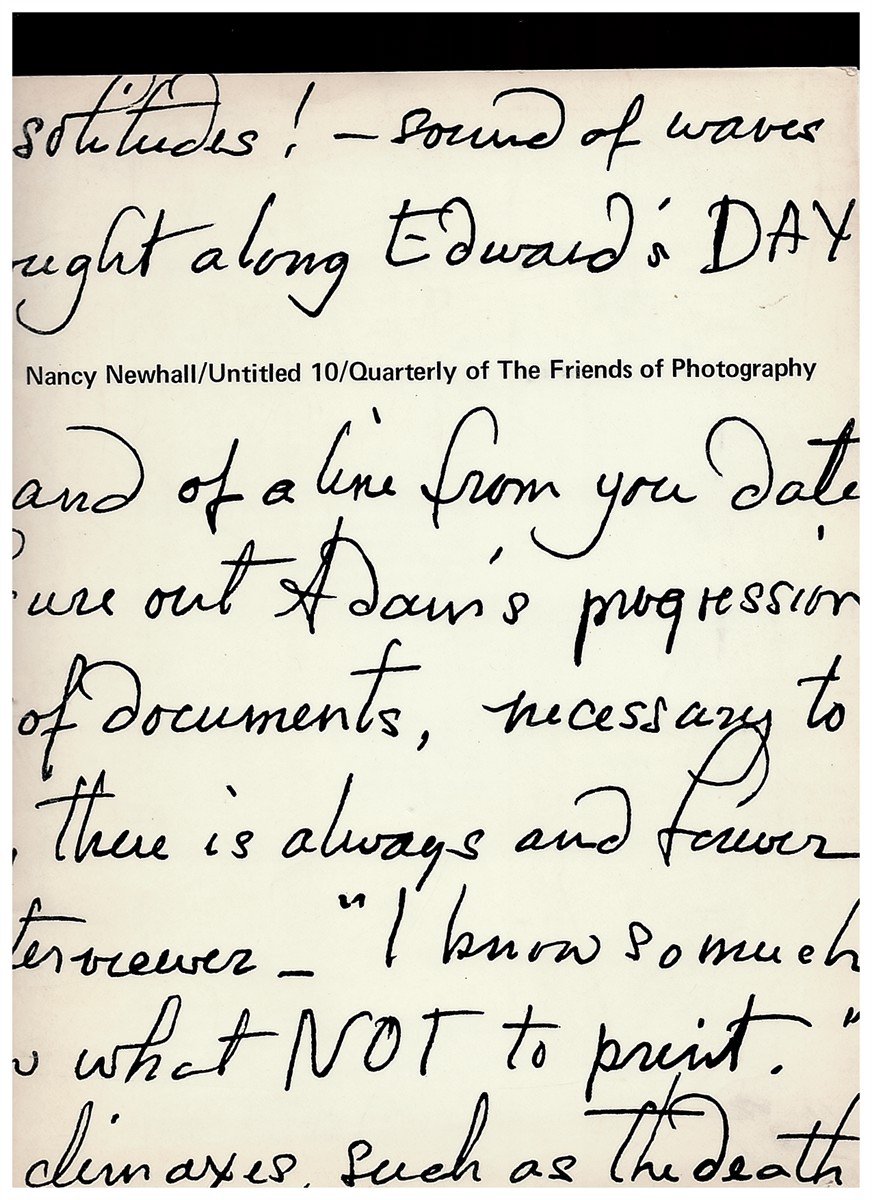 solitudes! — sound of waves
ught along Edward's DAY
Nancy Newhall/Untitled 10/Quarterly of The Friends of Photography
and of a line from you date
ure out Adam's progression
of documents, necessary to
, there is always and forever
terviewer — "I know so much
w what NOT to print."
climaxes, such as the death